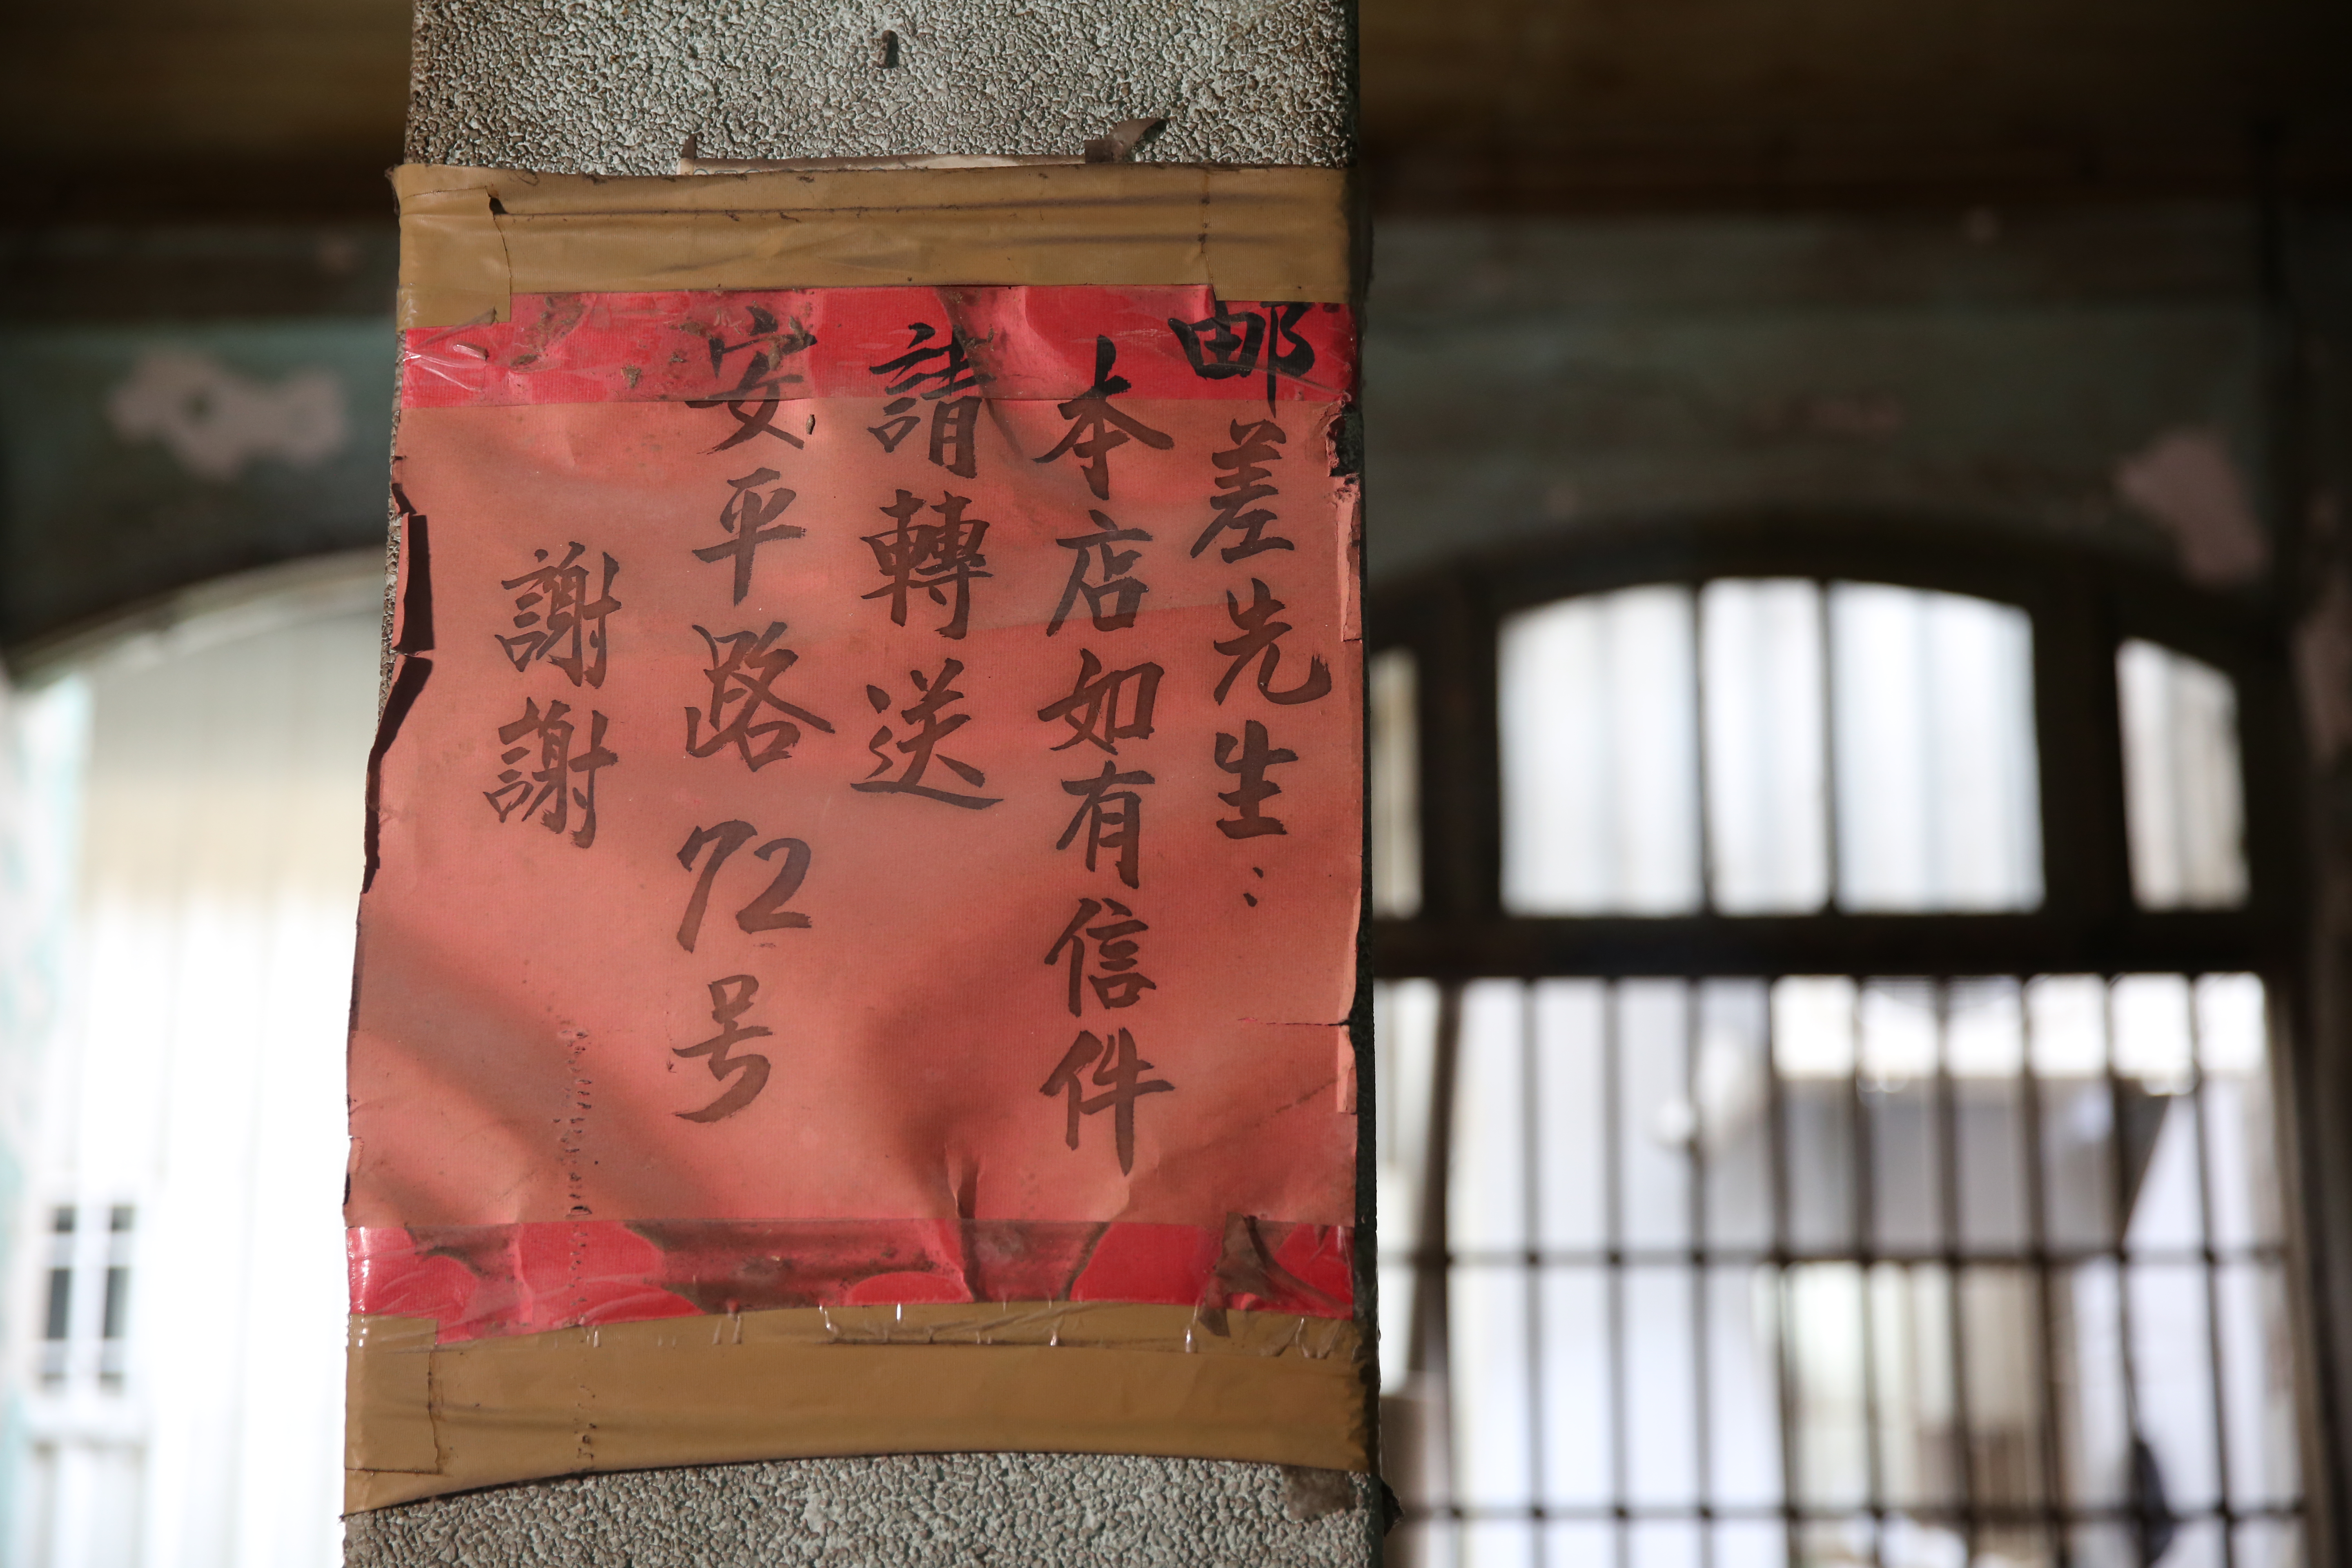 邮差先生：
本店如有信件
請轉送
安平路72号
謝謝